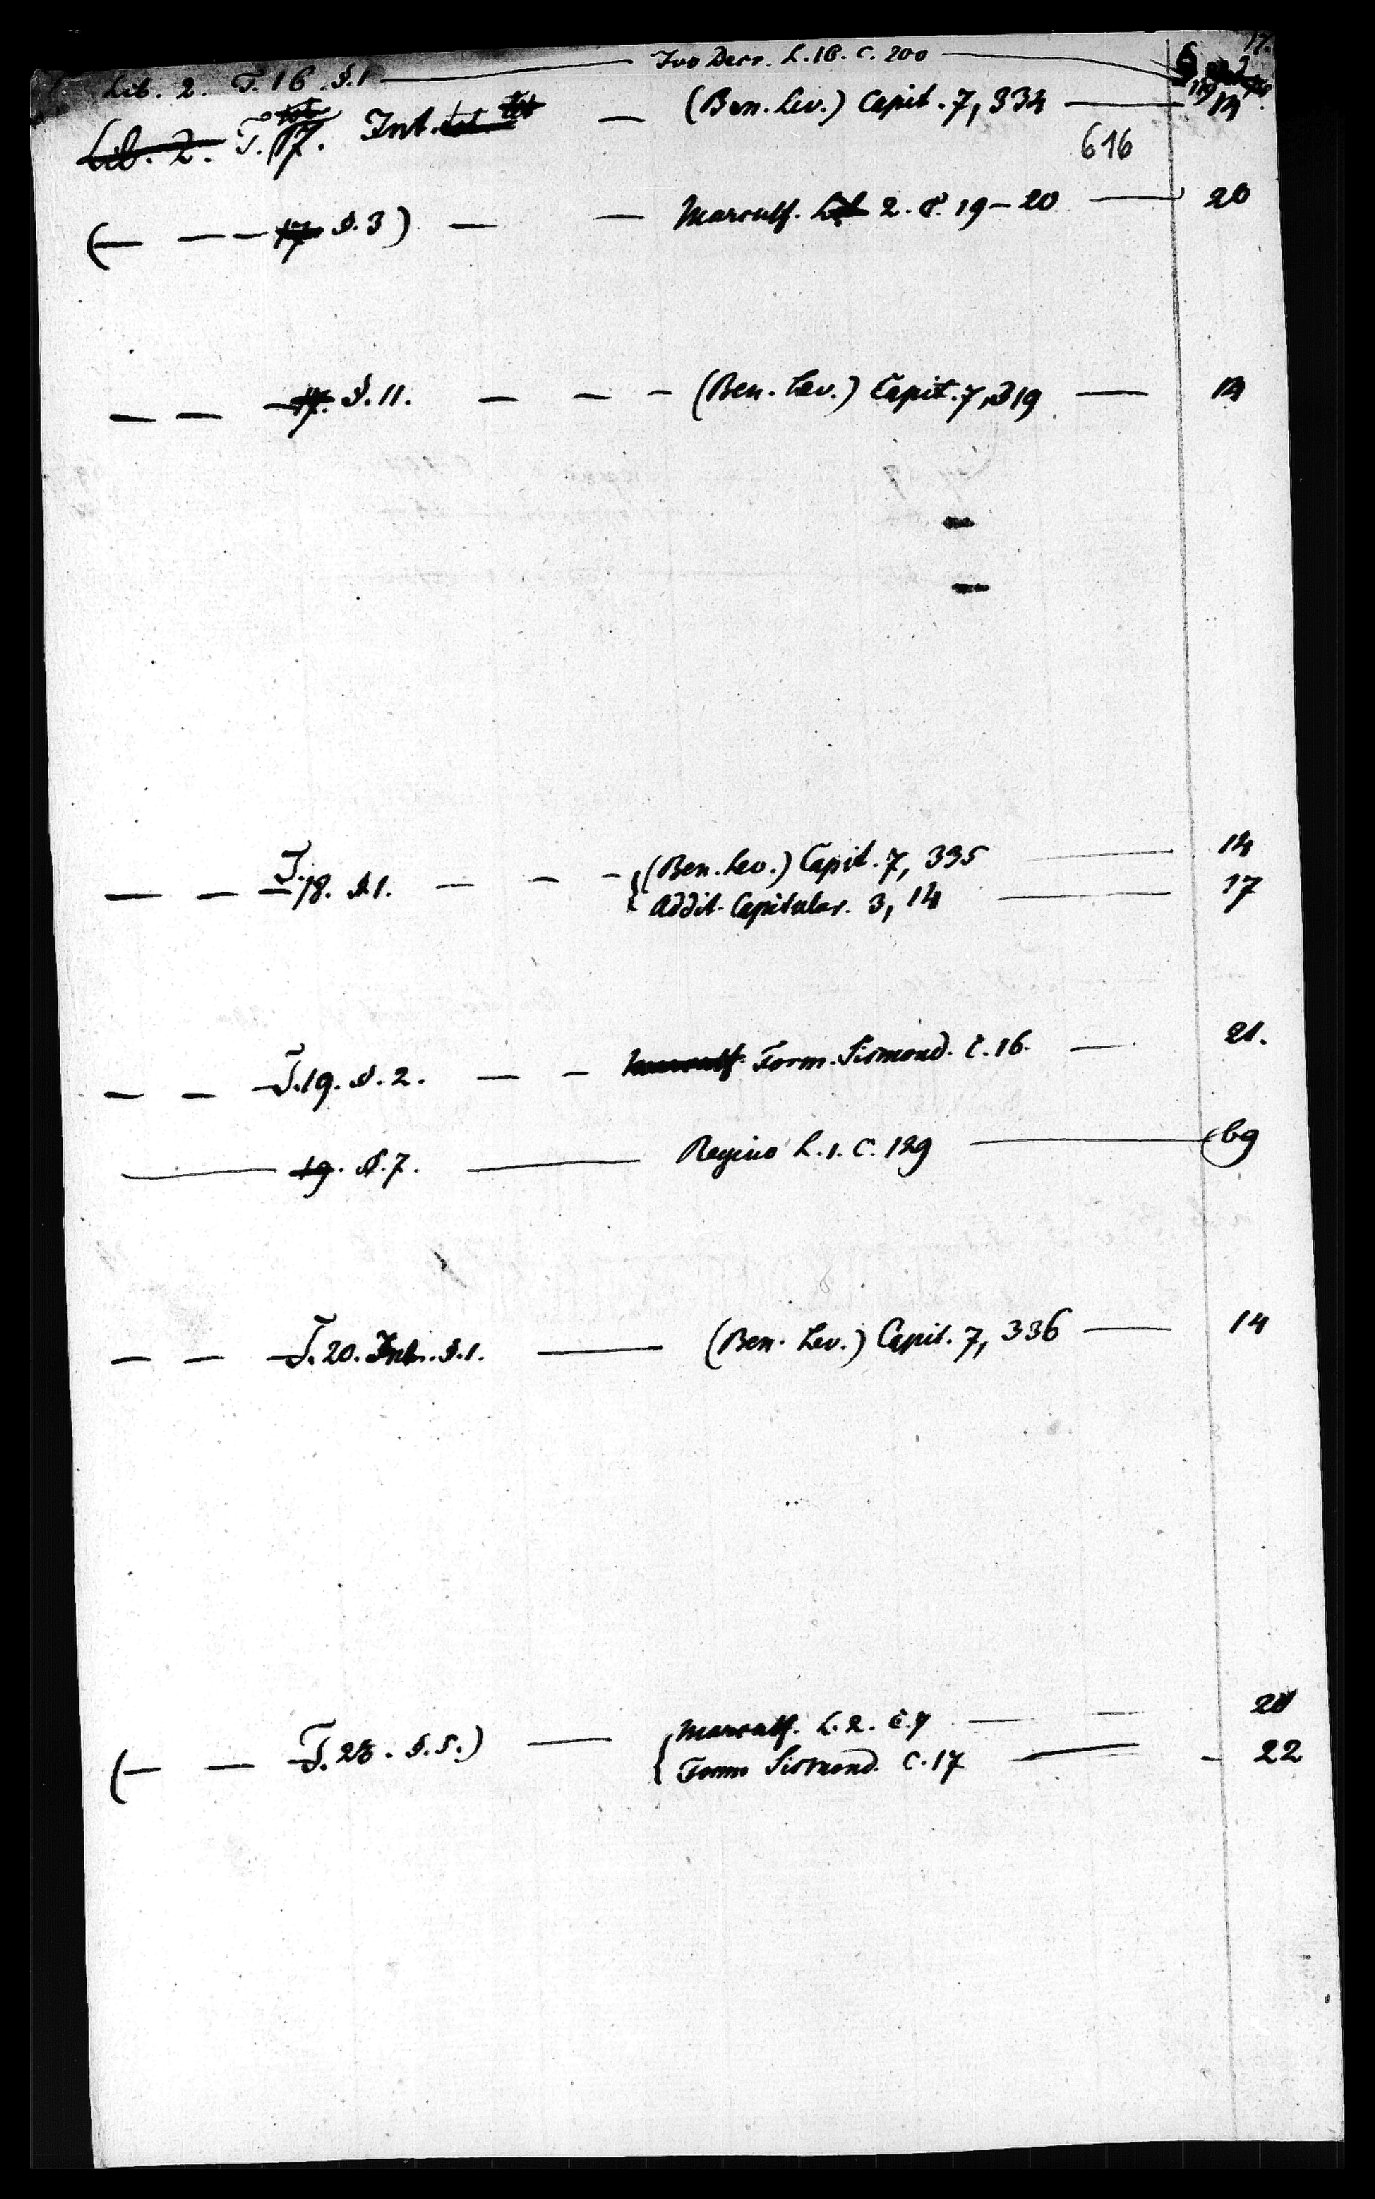 17.
Lib. 2. T. 16. §. 1 — Ivo Decr. L. 16. C. 200
Lib. 2. T. 17. Int. — (Ben. Lev.) Capit. 7, 334 — 14
616
(— — — 17 §. 3) — — Marculf. Lib 2. C. 19-20 — 20
— — — 17. §. 11. — — — (Ben. Lev.) Capit. 7, 319 — 14
— — — T. 18. §. 1. — — — (Ben. Lev.) Capit. 7, 335 — 14
Addit. Capitular. 3, 14 — 17
— — — T. 19. §. 2. — — Marculf. Form. Sirmond. C. 16. — 21.
— 19. §. 7. — Regino L. 1. C. 129 — 69
— — — T. 20. Int. §. 1. — (Ben. Lev.) Capit. 7, 336 — 14
(— — — T. §. 5.) — Marculf. L. 2. C.
Form Sirmond. C. 17 — — 22